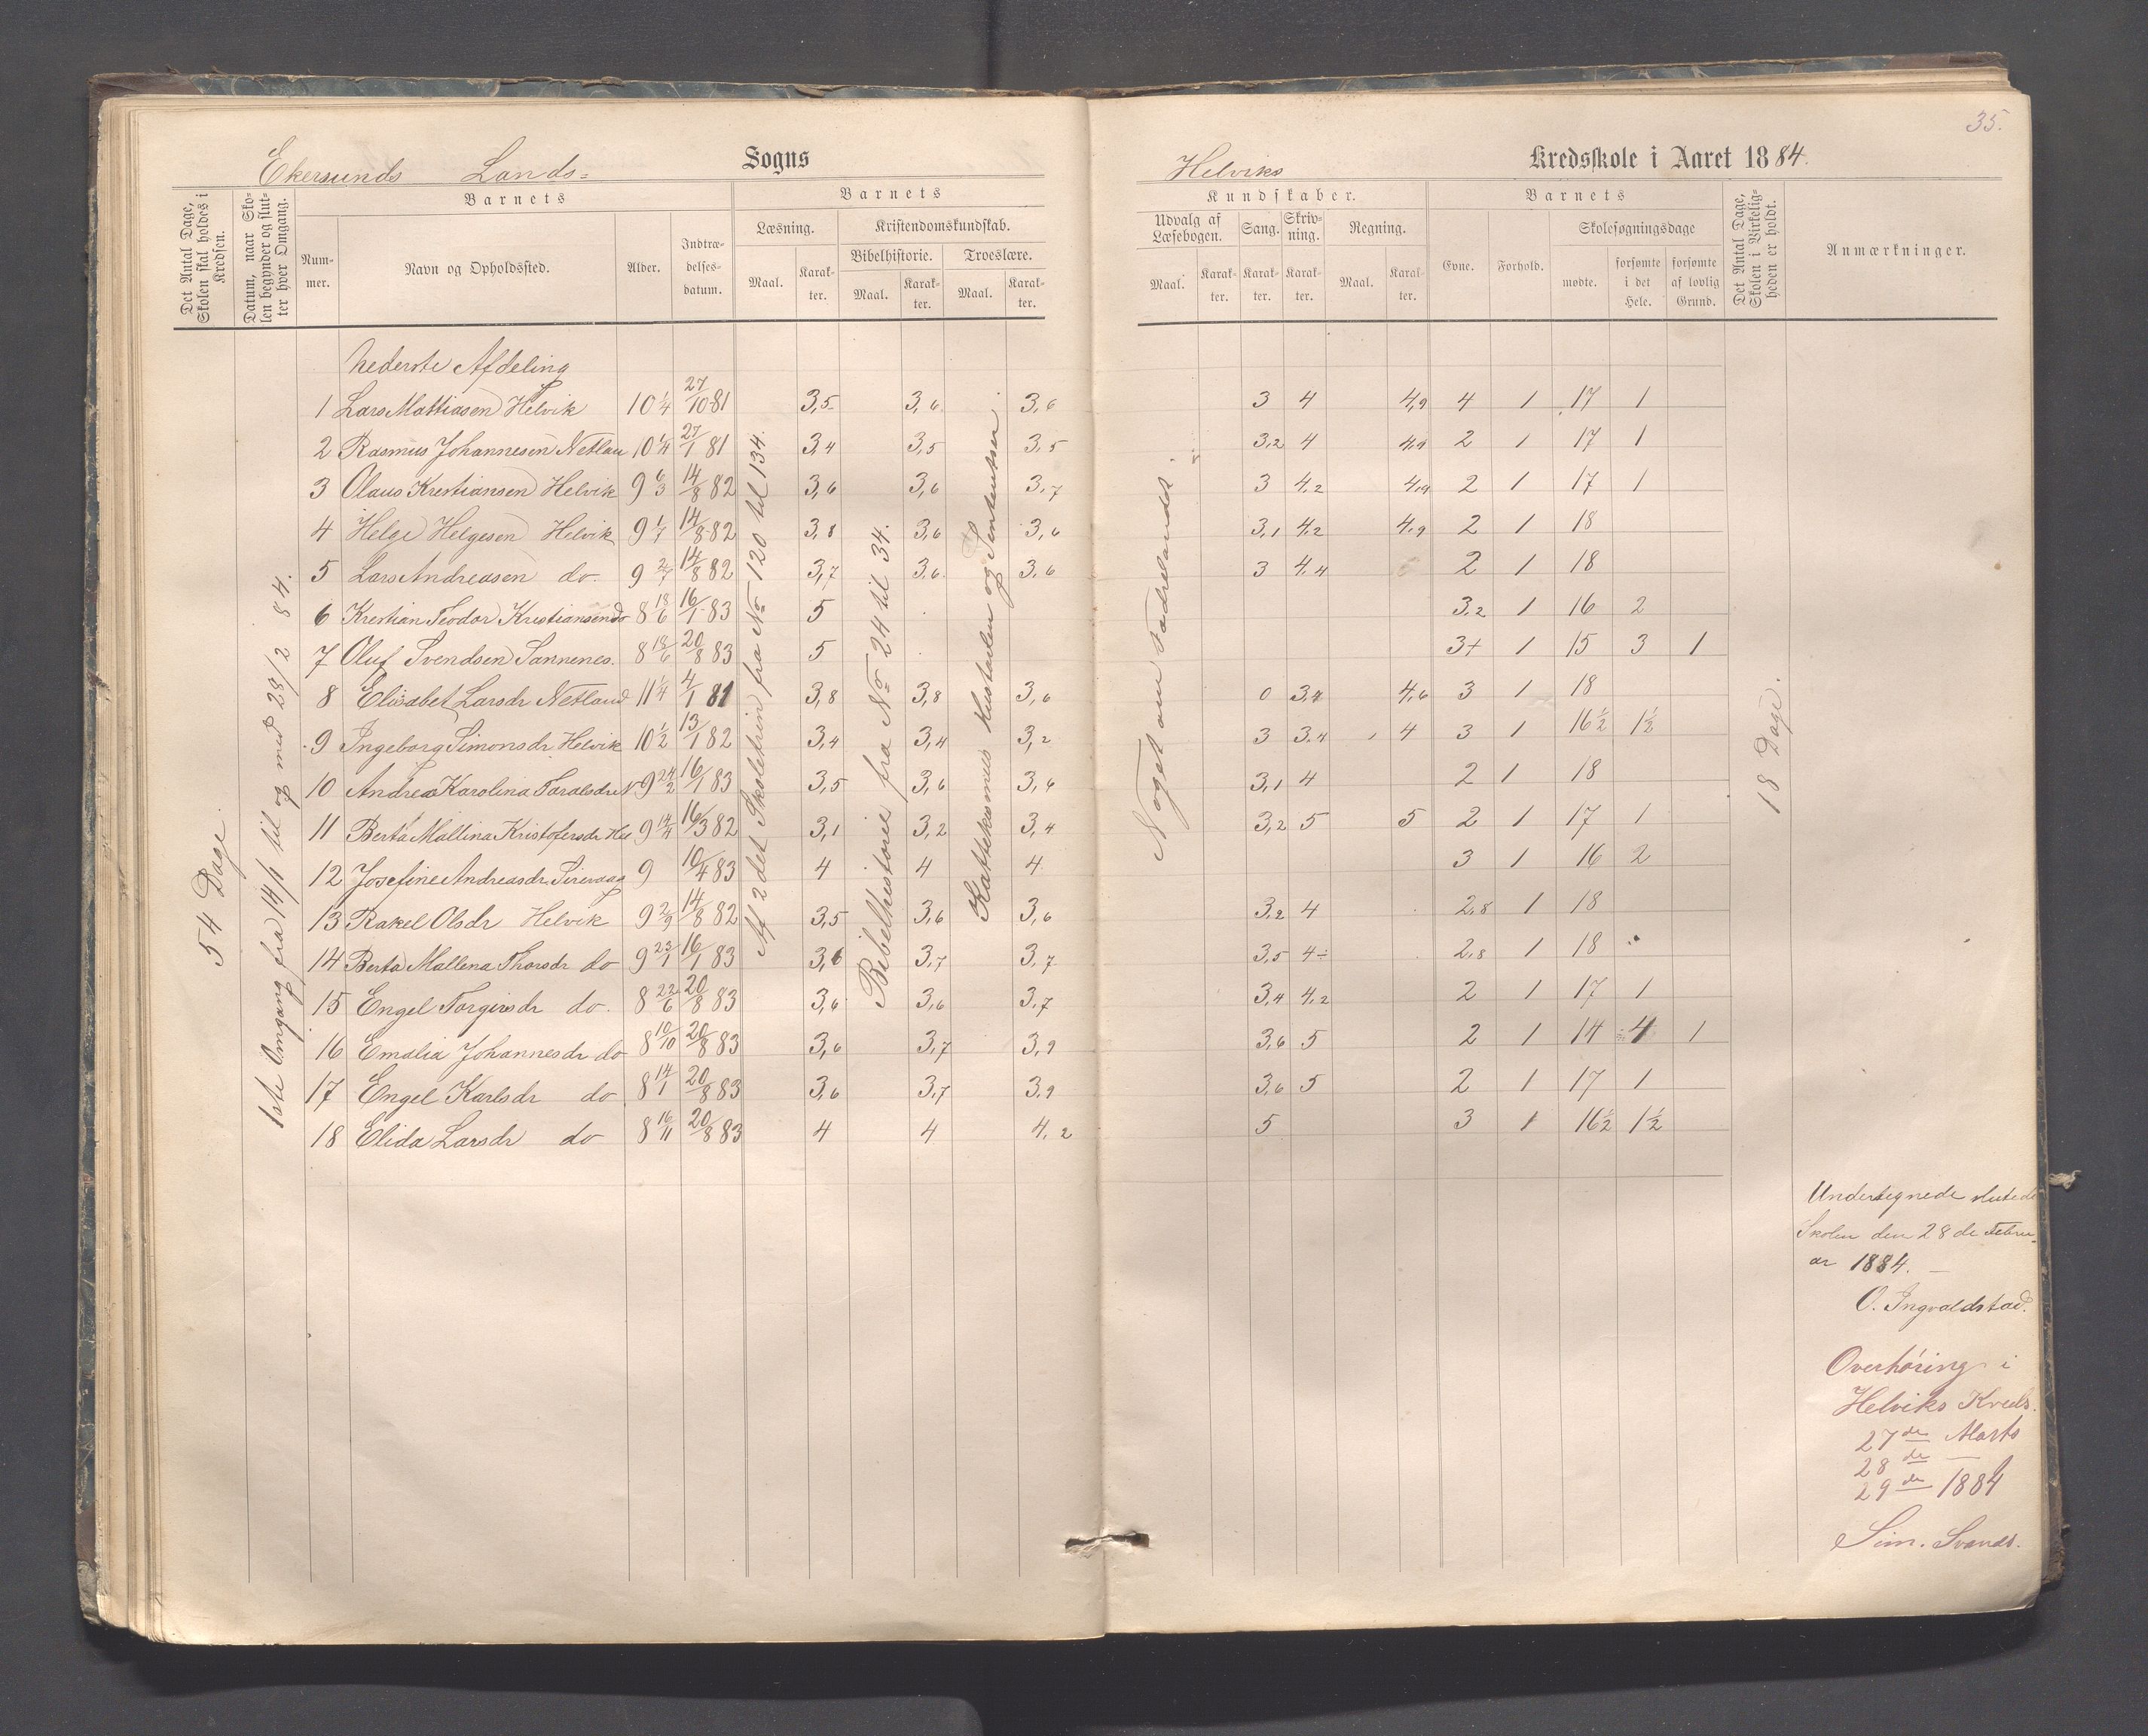 35.
Ekersunds Lands= Sogns
Helviks Kredsskole i Aaret 1884.
Det Antal Dage, Skolen skal holdes i Kredsen.
Datum, naar Skolen begynder og slutter hver Omgang.
Barnets
Nummer.
Navn og Opholdssted.
Alder.
Indtrædelsesdatum.
Barnets
Læsning.
Kristendomskundskab.
Bibelhistorie.
Troeslære.
Maal. Karakter. Maal. Karakter. Maal. Karakter.
Kundskaber.
Udvalg af Læsebogen.
Sang.
Skrivning.
Regning.
Maal. Karakter. Karakter. Karakter. Maal. Karakter.
Barnets
Evne.
Forhold.
Skolesøgningsdage
mødte.
forsømte i det Hele.
forsømte af lovlig Grund.
Det Antal Dage, Skolen i Virkeligheden er holdt.
Anmærkninger.
54 Dage.
1ste Omgang fra 14/1 til og med 28/2 84.
Af 2det Skoletrin fra No 120 til 134.
Bibelhistorie fra No 24 til 34.
Noget om Fædrelandet.
18 Dage.
Nederste Afdeling
1 Lars Mattiasen Helvik 10 1/4 27/10 81 3,5 3,6 3,6 3 4 4,9 4 1 17 1
2 Rasmus Johannesen Netlan 10 1/4 27/1 81 3,4 3,5 3,5 3,2 4 4,9 2 1 17 1
3 Olaus Kristiansen Helvik 9 6/3 14/8 82 3,6 3,6 3,7 3 4,2 4,9 2 1 17 1
4 Helge Helgesen Helvik 9 1/7 14/8 82 3,8 3,6 3,6 3,1 4,2 4,9 2 1 18
5 Lars Andreasen do. 9 2/7 14/8 82 3,7 3,6 3,6 3 4,4 2 1 18
6 Kristian Teodor Kristiansen do 8 18/6 16/1 83 5 3,2 1 16 2
7 Oluf Svendsen Sannenes. 8 18/6 20/8 83 5 3+ 1 15 3 1
8 Elisabet Larsdr Netland 11 1/4 4/1 81 3,8 3,8 3,6 0 3,4 4,6 3 1 18
9 Ingeborg Simonsdr Helvik 10 1/2 13/1 82 3,4 3,4 3,2 3 3,4 4 3 1 16 1/2 1 1/2
10 Andrea Karolina Taralsdr N 9 24/2 16/1 83 3,5 3,6 3,6 3,1 4 2 1 18
11 Berta Mallina Kristofersdr Hel 9 14/4 16/3 82 3,1 3,2 3,4 3,2 5 5 2 1 17 1
12 Josefine Andreasdr Sirevaag 9 10/4 83 4 4 4 3 1 16 2
13 Rakel Olsdr Helvik 9 2/9 14/8 82 3,5 3,6 3,6 3,2 4 2,8 1 18
14 Berta Mallena Thorsdr do 9 23/1 16/1 83 3,6 3,7 3,7 3,5 4÷ 2,8 1 18
15 Engel Torgersdr do. 8 22/6 20/8 83 3,6 3,6 3,7 3,4 4,2 2 1 17 1
16 Emalia Johannesdr do 8 10/10 20/8 83 3,6 3,7 3,9 3,6 5 2 1 14 4 1
17 Engel Karlsdr do 8 14/1 20/8 83 3,6 3,7 3,9 3,6 5 2 1 17 1
18 Elida Larsdr do 8 16/11 20/8 83 4 4 4,2 5 3 1 16 1/2 1 1/2
Undertegnede sluttede
Skolen den 28de Febru-
ar 1884. —
O. Ingvaldstad.
Overhøring i
Helviks Kreds.
27de Marts
28de —
29de 1884
Sim. Svands.